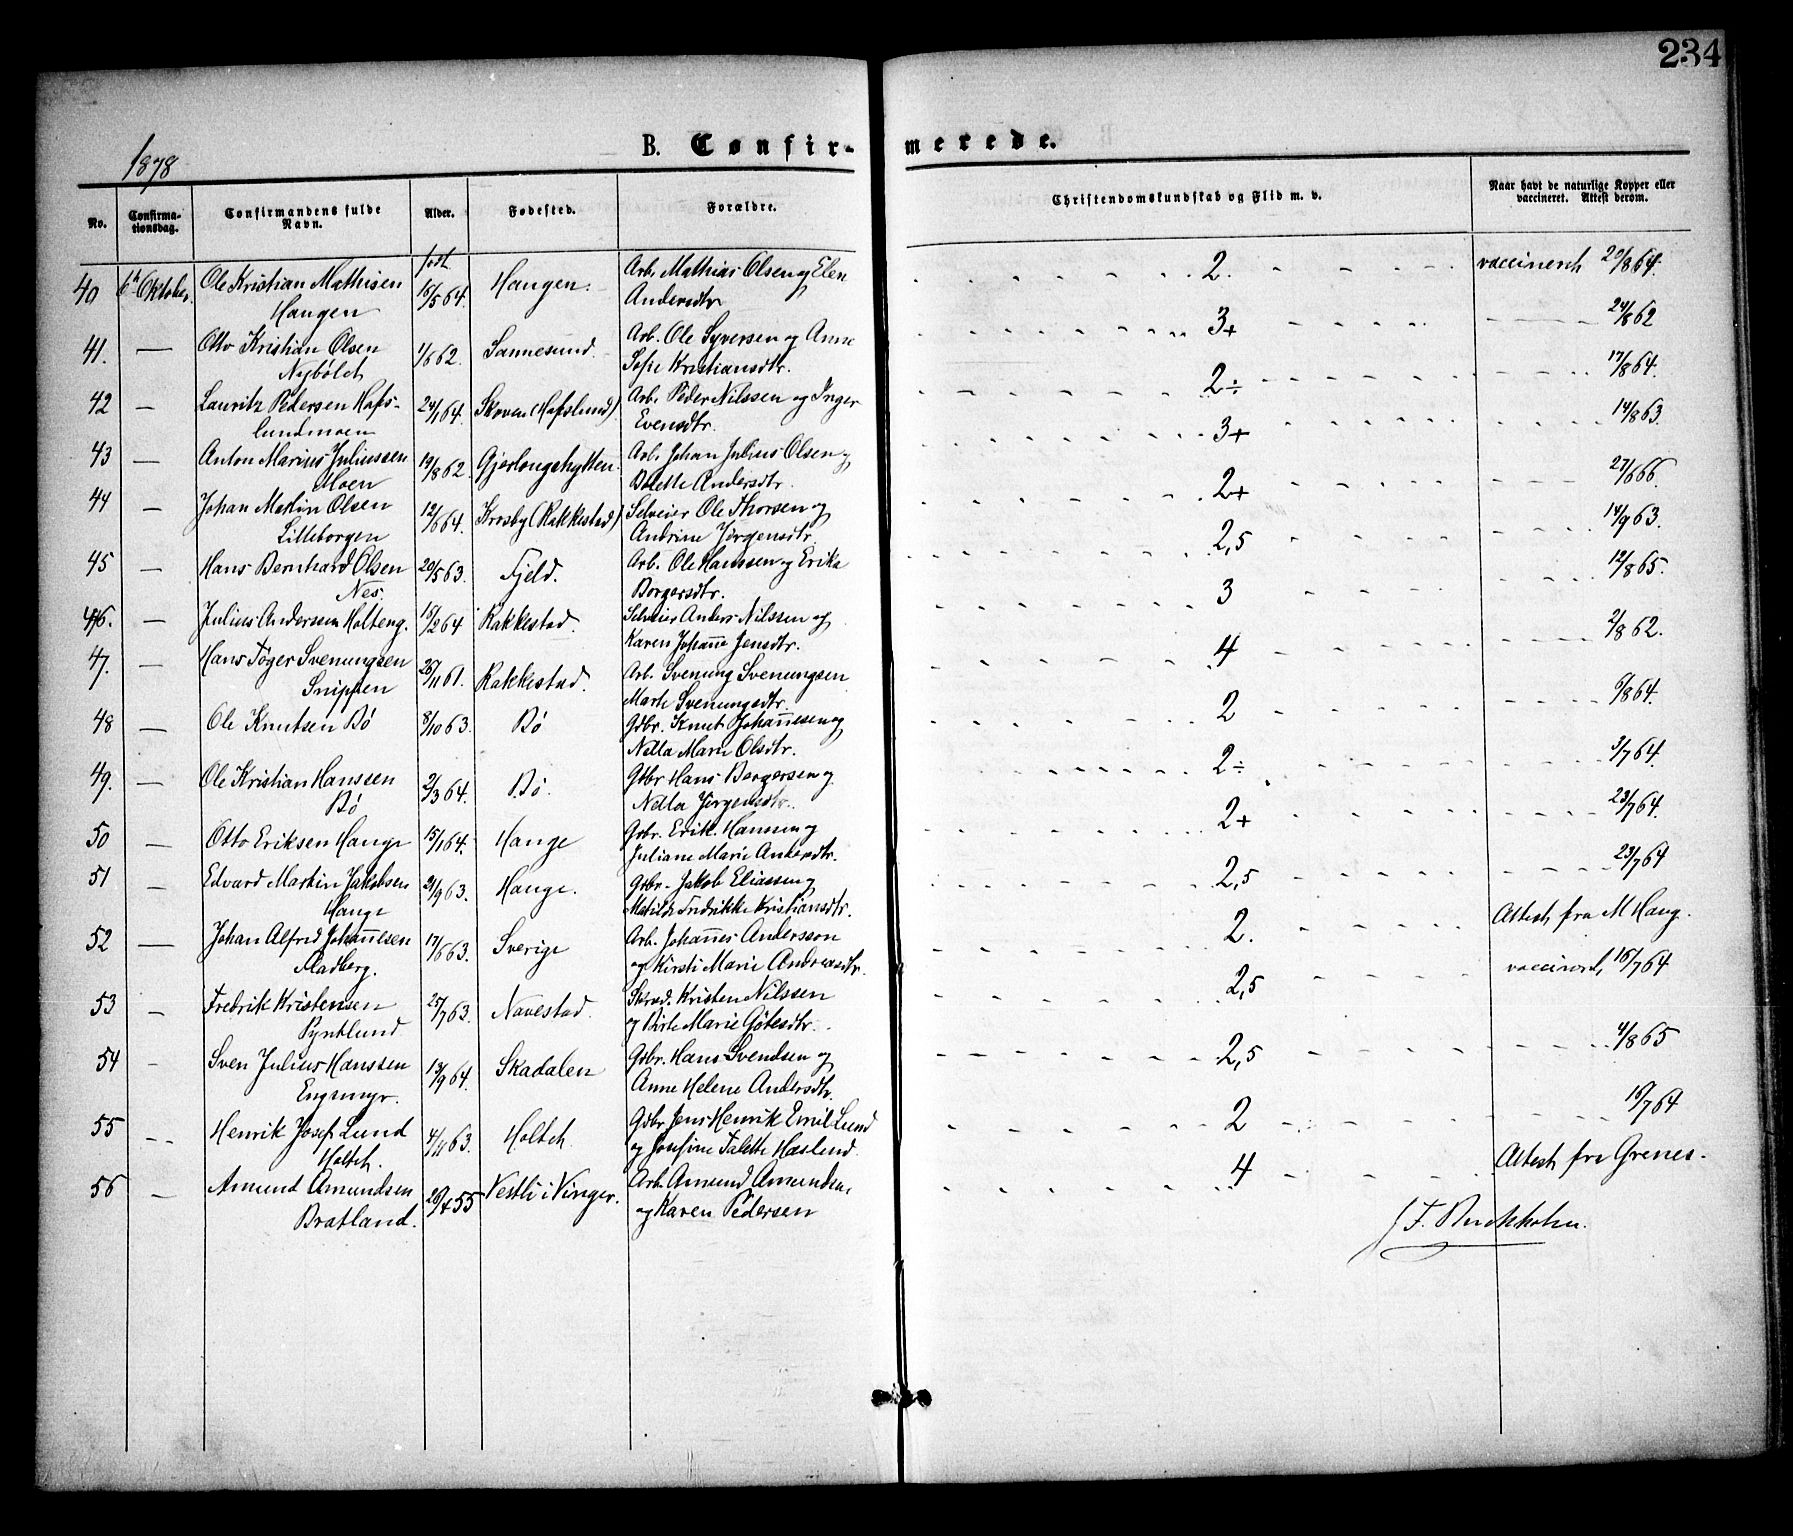 234
1878
B. Confir-merede.
No. Confirmationsdag. Confirmandens fulde Navn. Alder. Fødested. Forældre. Christendomskundskab og Flid m. v. Naar havt de naturlige Kopper eller vaccineret. Attest derom.
født
40 6te Oktober. Ole Kristian Mathisen 16/5 64. Haugen. Arb. Mathias Olsen og Elen 2. vaccineret 20/8 64.
Haugen Andersdtr
41. — Otto Kristian Olsen 1/6 62. Sannesund. Arb. Ole Syversen og Anne 3+ 24/8 62
Nybølet Sofie Kristiansdtr.
42 — Lauritz Pedersen Hafs- 24/1 64. Skoven (Hafslund). Arb. Peder Nilssen og Inger 2÷ 17/8 64.
lundmoen Evensdtr.
43 — Anton Marius Juliussen 19/8 62. Gjerlaugshytten. Arb. Johan Julius Olsen og 3+ 14/8 63.
Moen Bolette Andersdtr.
44 — Johan Martin Olsen 12/6 64. Krosby (Rakkestad) Selveier Ole Thorsen og 2+ 27/6 66.
Lilleborgen Andrine Jørgensdtr.
45 — Hans Bernhard Olsen 20/5 63. Fjeld. Arb. Ole Hanssen og Erika 2,5 14/9 63.
Nes. Borgersdtr.
46. — Julius Anderssen Holteng. 15/2 64 Rakkestad. Selveier Anders Nilssen og 3 12/8 65.
Karen Johanne Jensdtr.
47. — Hans Tøger Svenungsen 26/11 61. Rakkestad. Arb. Svenung Svenungsen 4 2/8 62.
Snippen Marte Svenungsdtr.
48 — Ole Knutsen Bø 8/10 63. Bø Gdbr. Knut Johannesen og 2 6/8 64.
Nella Marie Olsdtr.
49. — Ole Kristian Hanssen 2/3 64. Bø. Gdbr Hans Borgersen og 2÷ 3/7 64.
Bø Nella Jørgensdtr.
50 — Otto Eriksen Hauge 15/1 64. Hauge Gdbr. Erik Hansen og 2+ 23/7 64.
Juliane Marie Andersdtr.
51 — Edvard Martin Jakobsen 21/9 63. Hauge. Gdbr. Jakob Eliassen og 2,5 23/7 64
Hauge Matilde Fredrikke Kristiansdtr.
52 — Johan Alfred Johannesen 17/6 63. Sverige Arb. Johannes Andersson 2. Attest fra M Haug.
Aadberg. og Kirsti Marie Andreasdtr.
53 — Fredrik Kristensen 25/7 63. Navestad. Skræd. Kristen Nilssen 2,5 vaccineret, 16/7 64
Pyntlund og Birte Marie Gøtesdtr.
54 — Sven Julius Hanssen 13/9 64. Skadalen Gdbr. Hans Svendsen og 2,5 4/8 65
Engmyr. Anne Helene Andersdtr.
55 — Henrik Josef Lund 4/11 63. Holtet. Gdbr Jens Henrik Emil Lund 2 16/7 64
Holtet. og Josefine Talette Haslund.
56 — Amund Amundsen 20/4 55 Vestli i Vinger. Arb. Amund Amundsen 4 Attest fra Grenes.
Bratland. og Karen Pedersen
J. F. Buckholm.